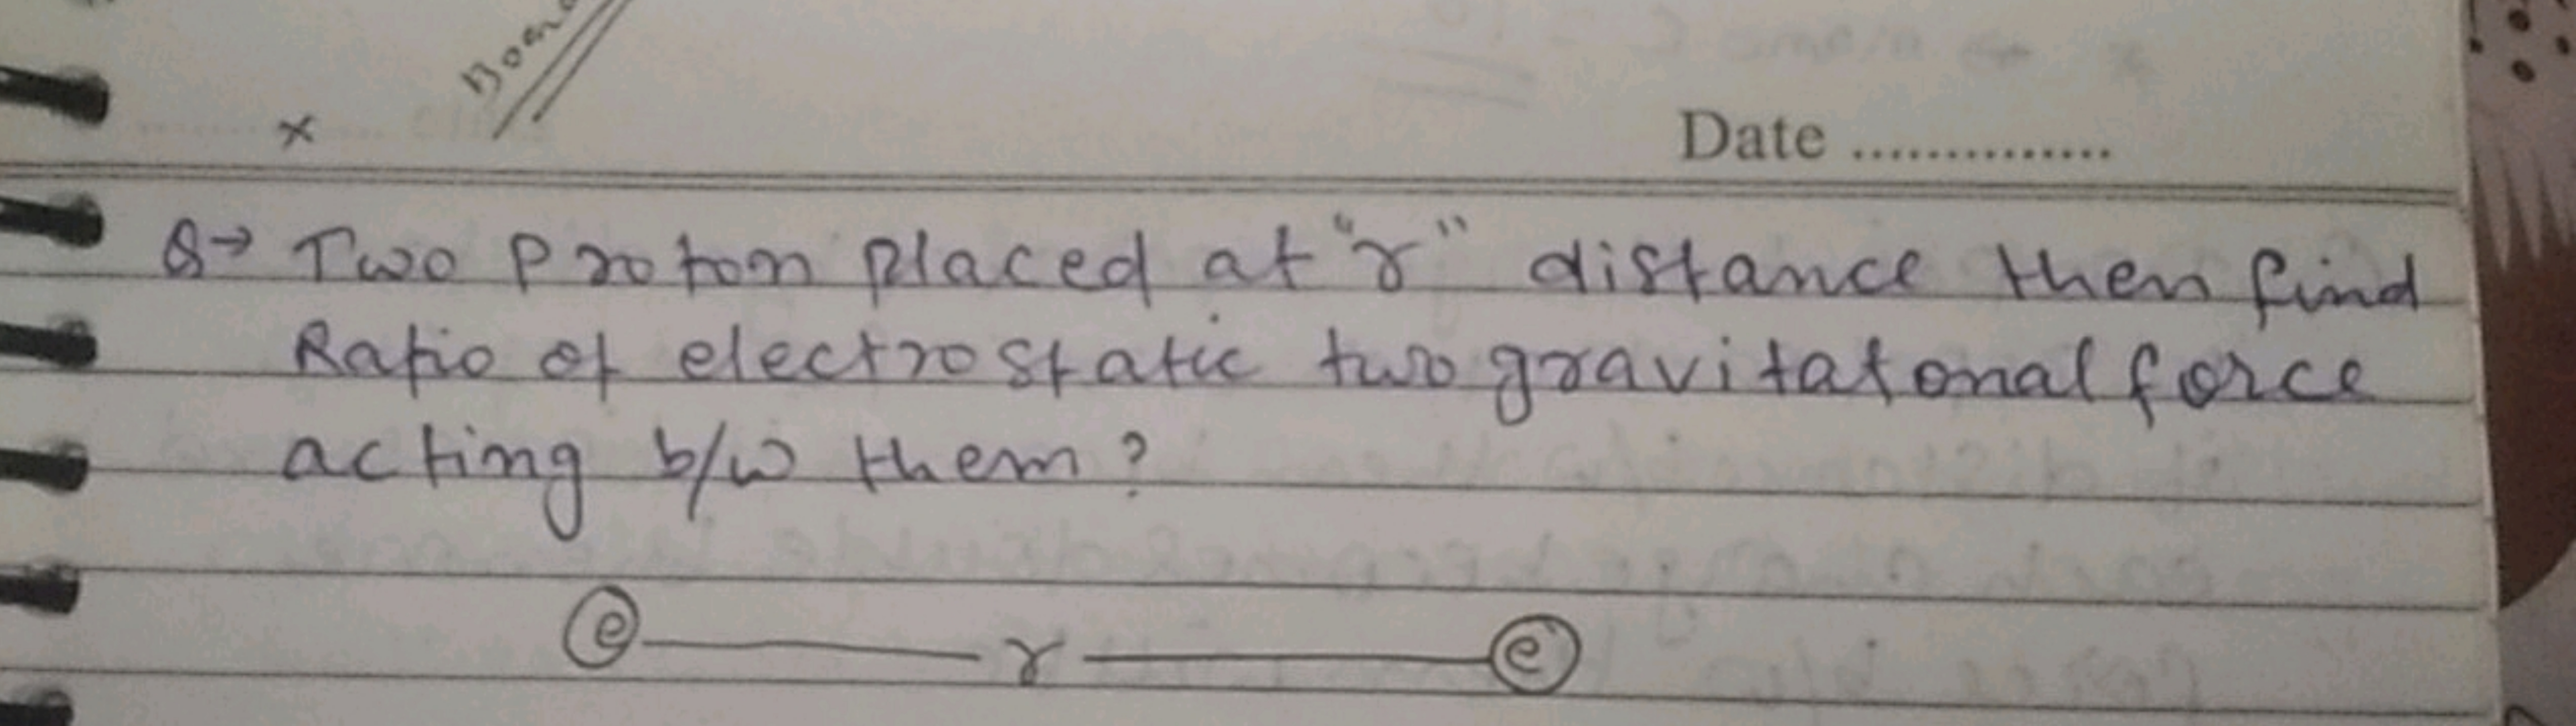 Date ..............
×
Q→ Two Proton placed at "r" distance then find
Ratio of electrostatic two gravitatonal force
acting b/w them?
e r e